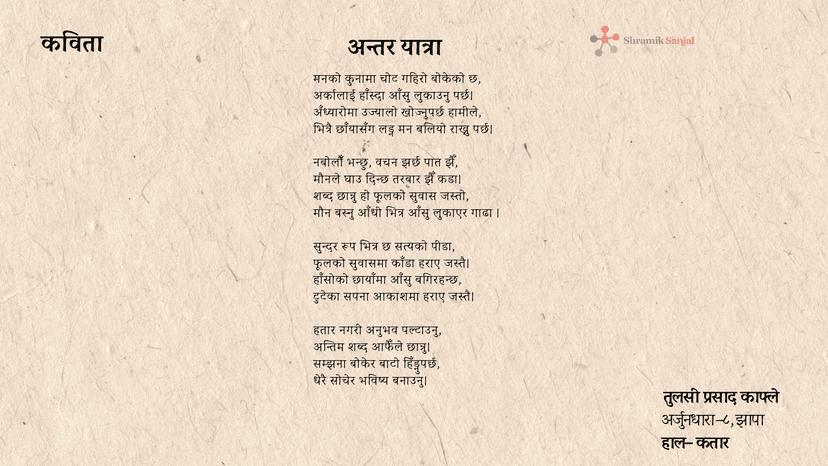 कविता
अन्तर यात्रा
Shramik Sanjal
मनको कुनामा चोट गहिरो बोकेको छ,
अर्कालाई हाँस्दा आँसु लुकाउनु पर्छ।
अँध्यारोमा उज्यालो खोज्नुपर्छ हामीले,
भित्रै छाँयासँग लड्न मन बलियो राख्नु पर्छ।
नबोलौँ भन्छु, वचन झर्छ पात झैँ,
मौनले घाउ दिन्छ तरबार झैँ कडा।
शब्द छान्नु हो फूलको सुवास जस्तो,
मौन बस्नु आँधी भित्र आँसु लुकाएर गाढा ।
सुन्दर रूप भित्र छ सत्यको पीडा,
फूलको सुवासमा काँडा हराए जस्तै।
हाँसोको छायाँमा आँसु बगिरहन्छ,
टुटेका सपना आकाशमा हराए जस्तै।
हतार नगरी अनुभव पल्टाउनु,
अन्तिम शब्द आफैँले छान्नु।
सम्झना बोकेर बाटो हिँड्नुपर्छ,
धेरै सोचेर भविष्य बनाउनु।
तुलसी प्रसाद काफ्ले
अर्जुनधारा-८, झापा
हाल- कतार